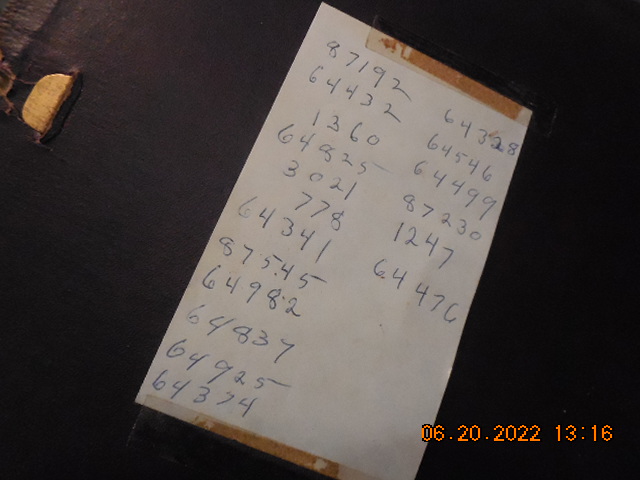 87192
64432
1360
64825
3021
778
64341
87545
64982
64837
64925
64374
64328
64546
64499
87230
1247
64476
06.20.2022 13:16